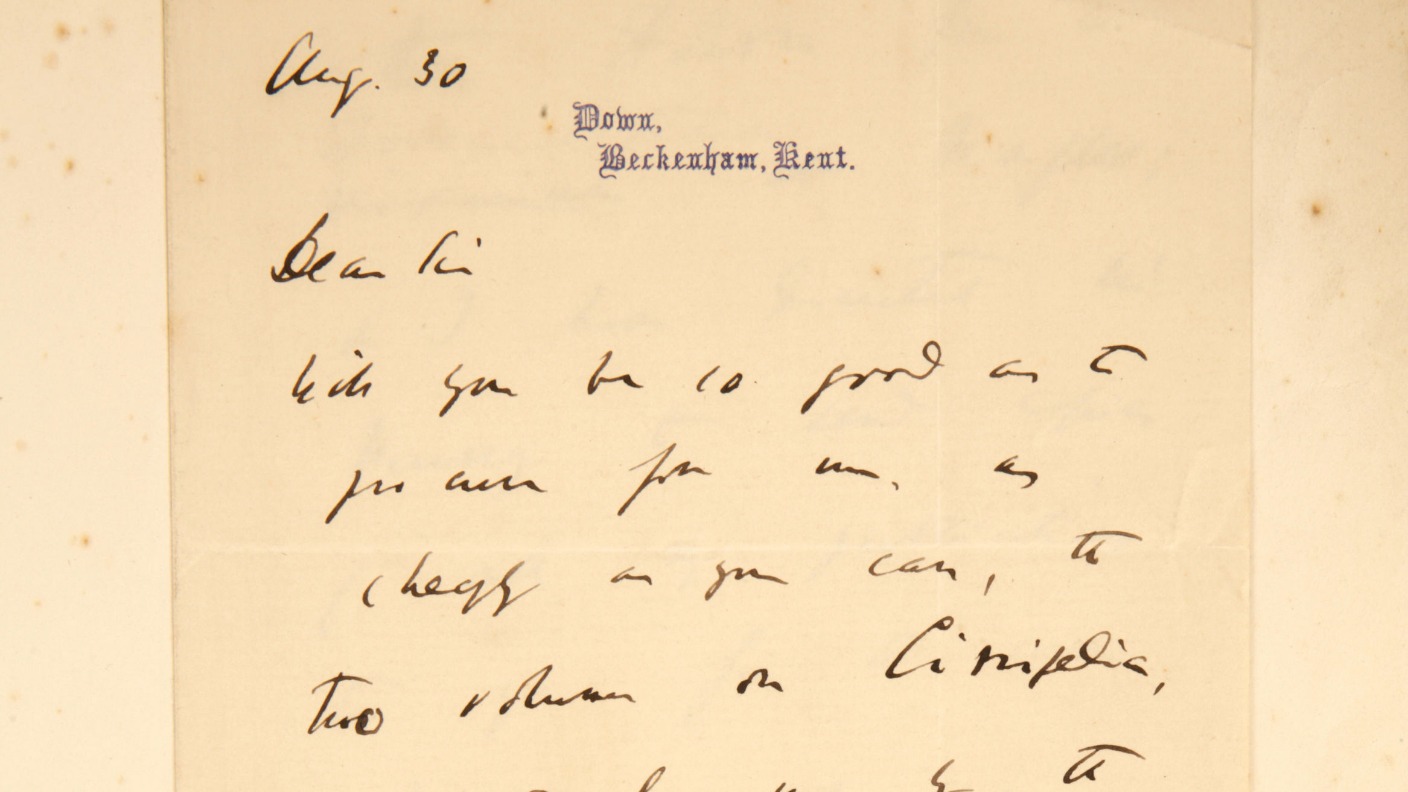 Aug. 30
Down,
Beckenham, Kent.
Dear Sir
Will you be so good as to
procure for me, as
cheaply as you can, the
two volumes on Cirripedia,
by the